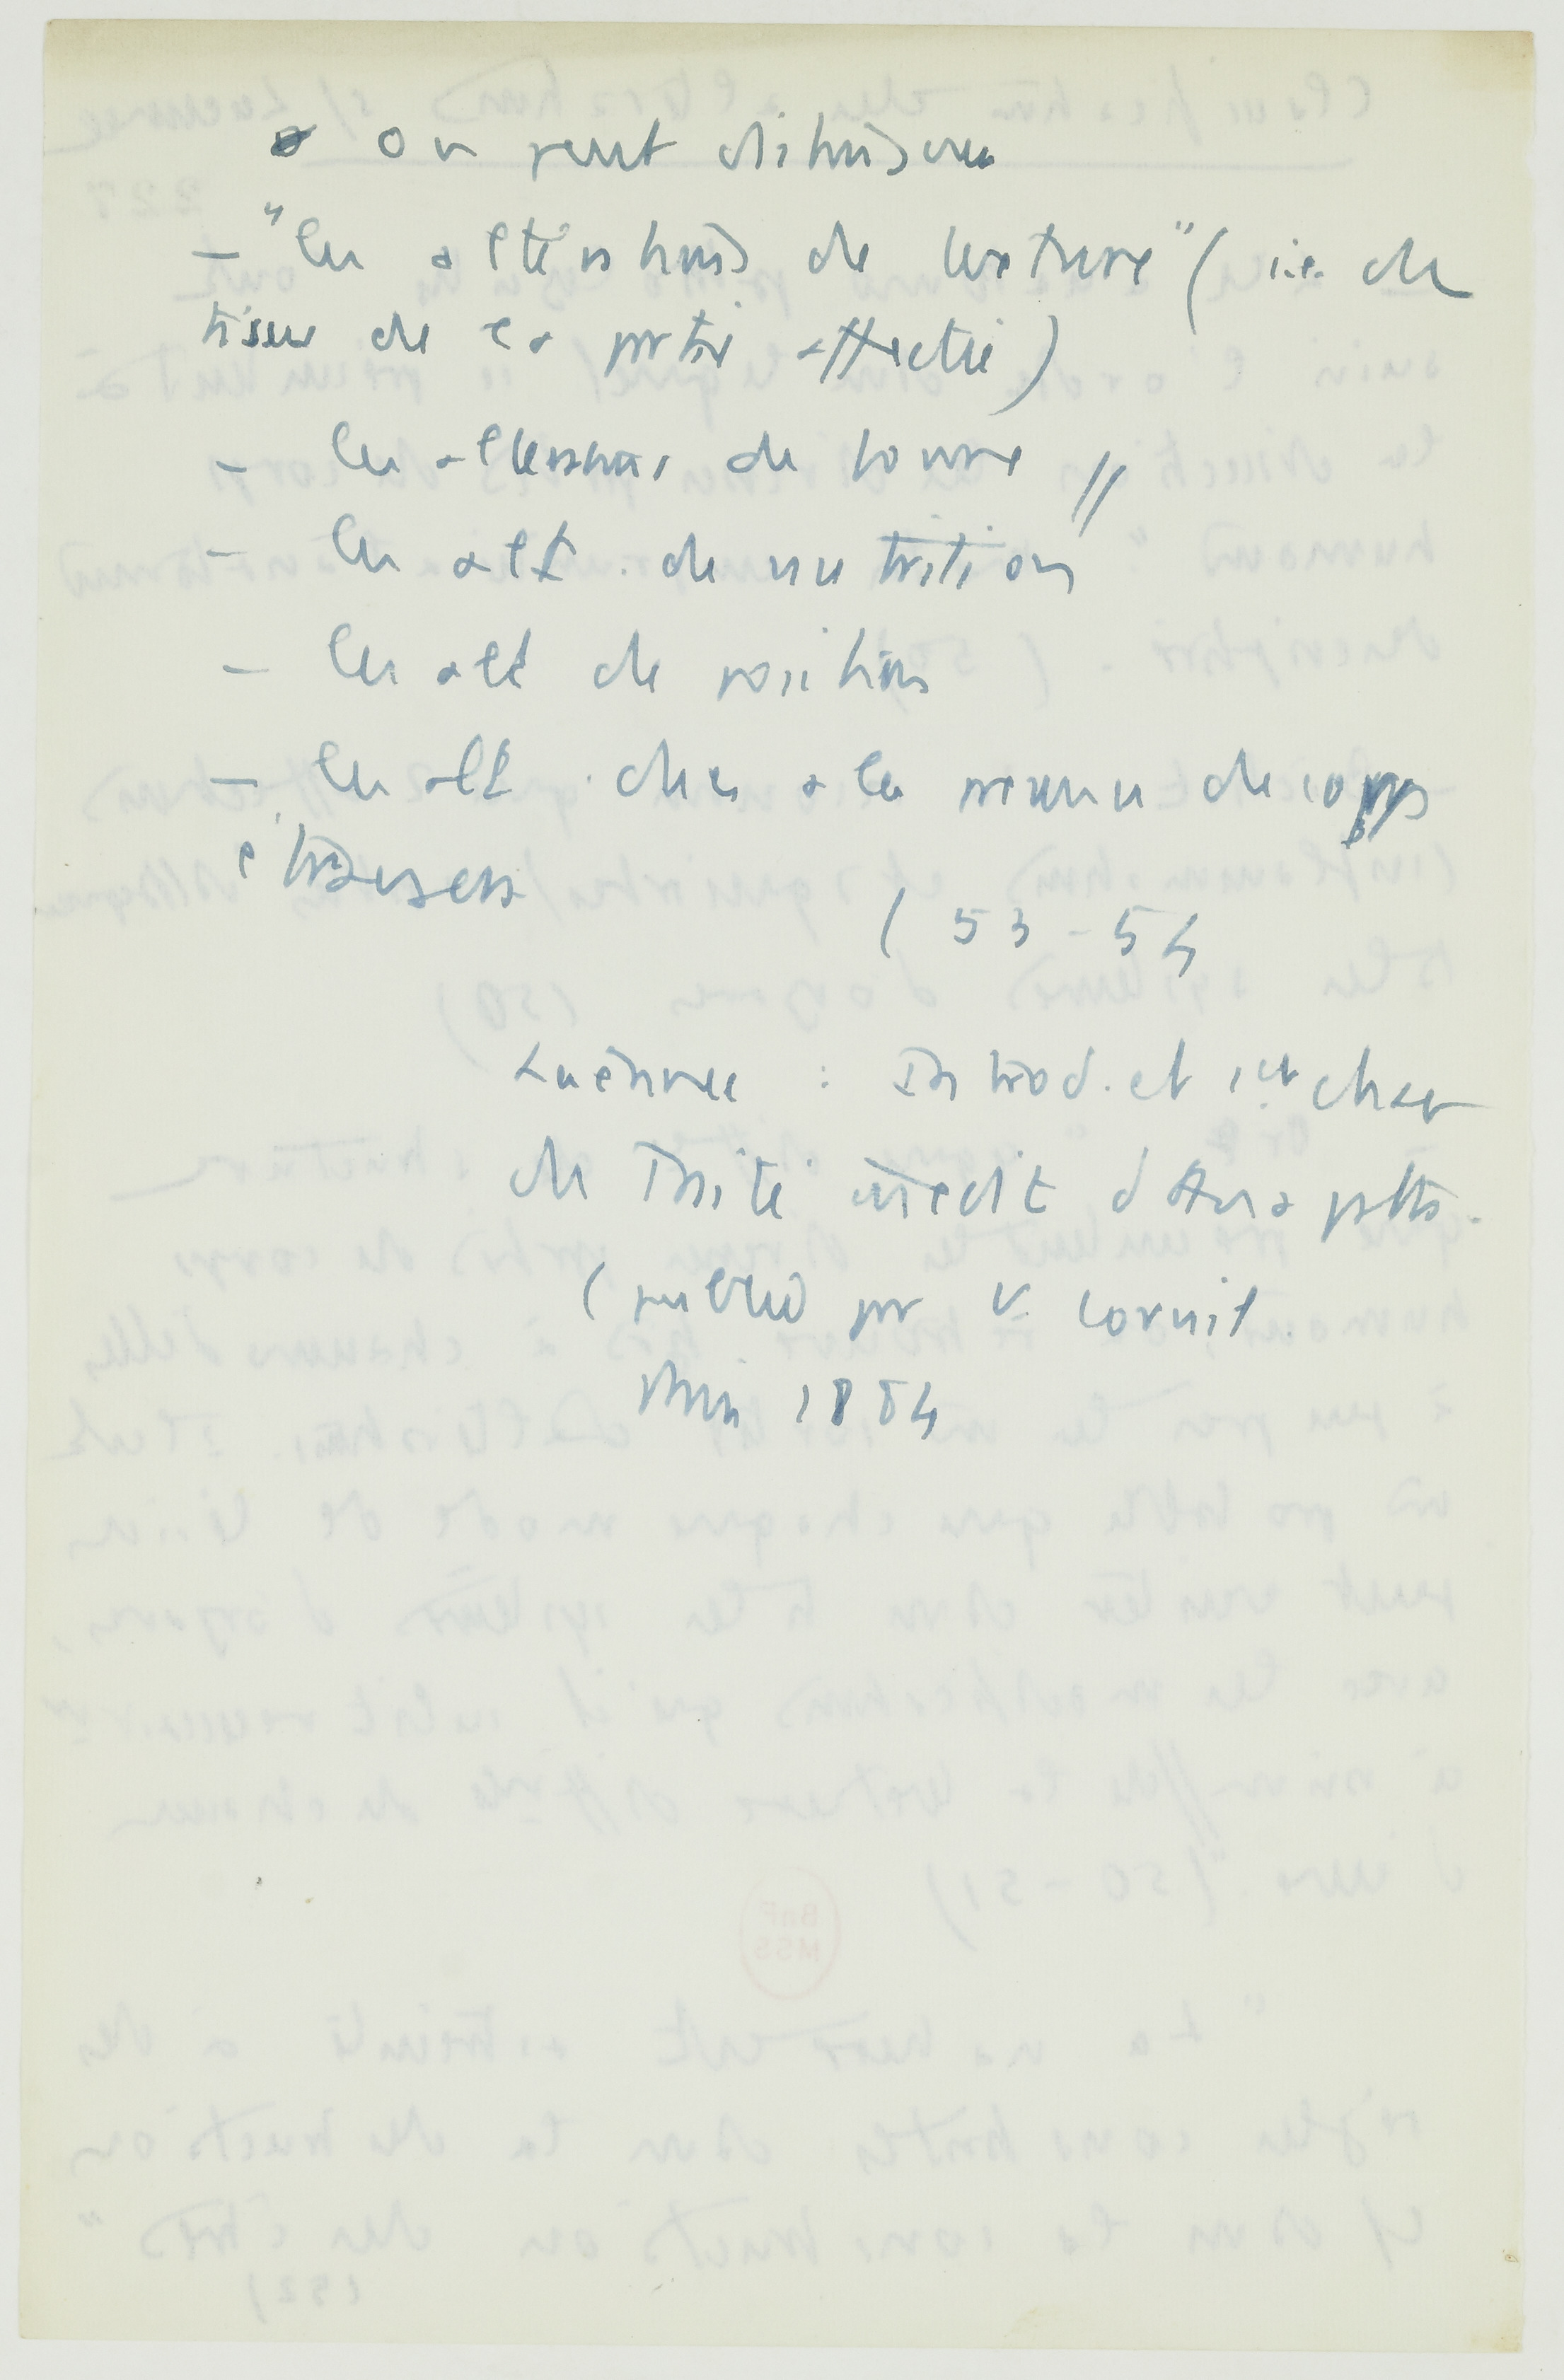 On peut distinguer
– "les altérations de texture" (i.e. du
tissu de la partie affectée)
– les altérations de forme //
– les alt de nutrition
– les alt de position
– les alt. dues à la présence de corps
étrangers
( 53 - 54
Laënnec : Introd. et 1er chap
du Traité inédit d'Ana path.
(publié par V. Cornil
Paris 1884